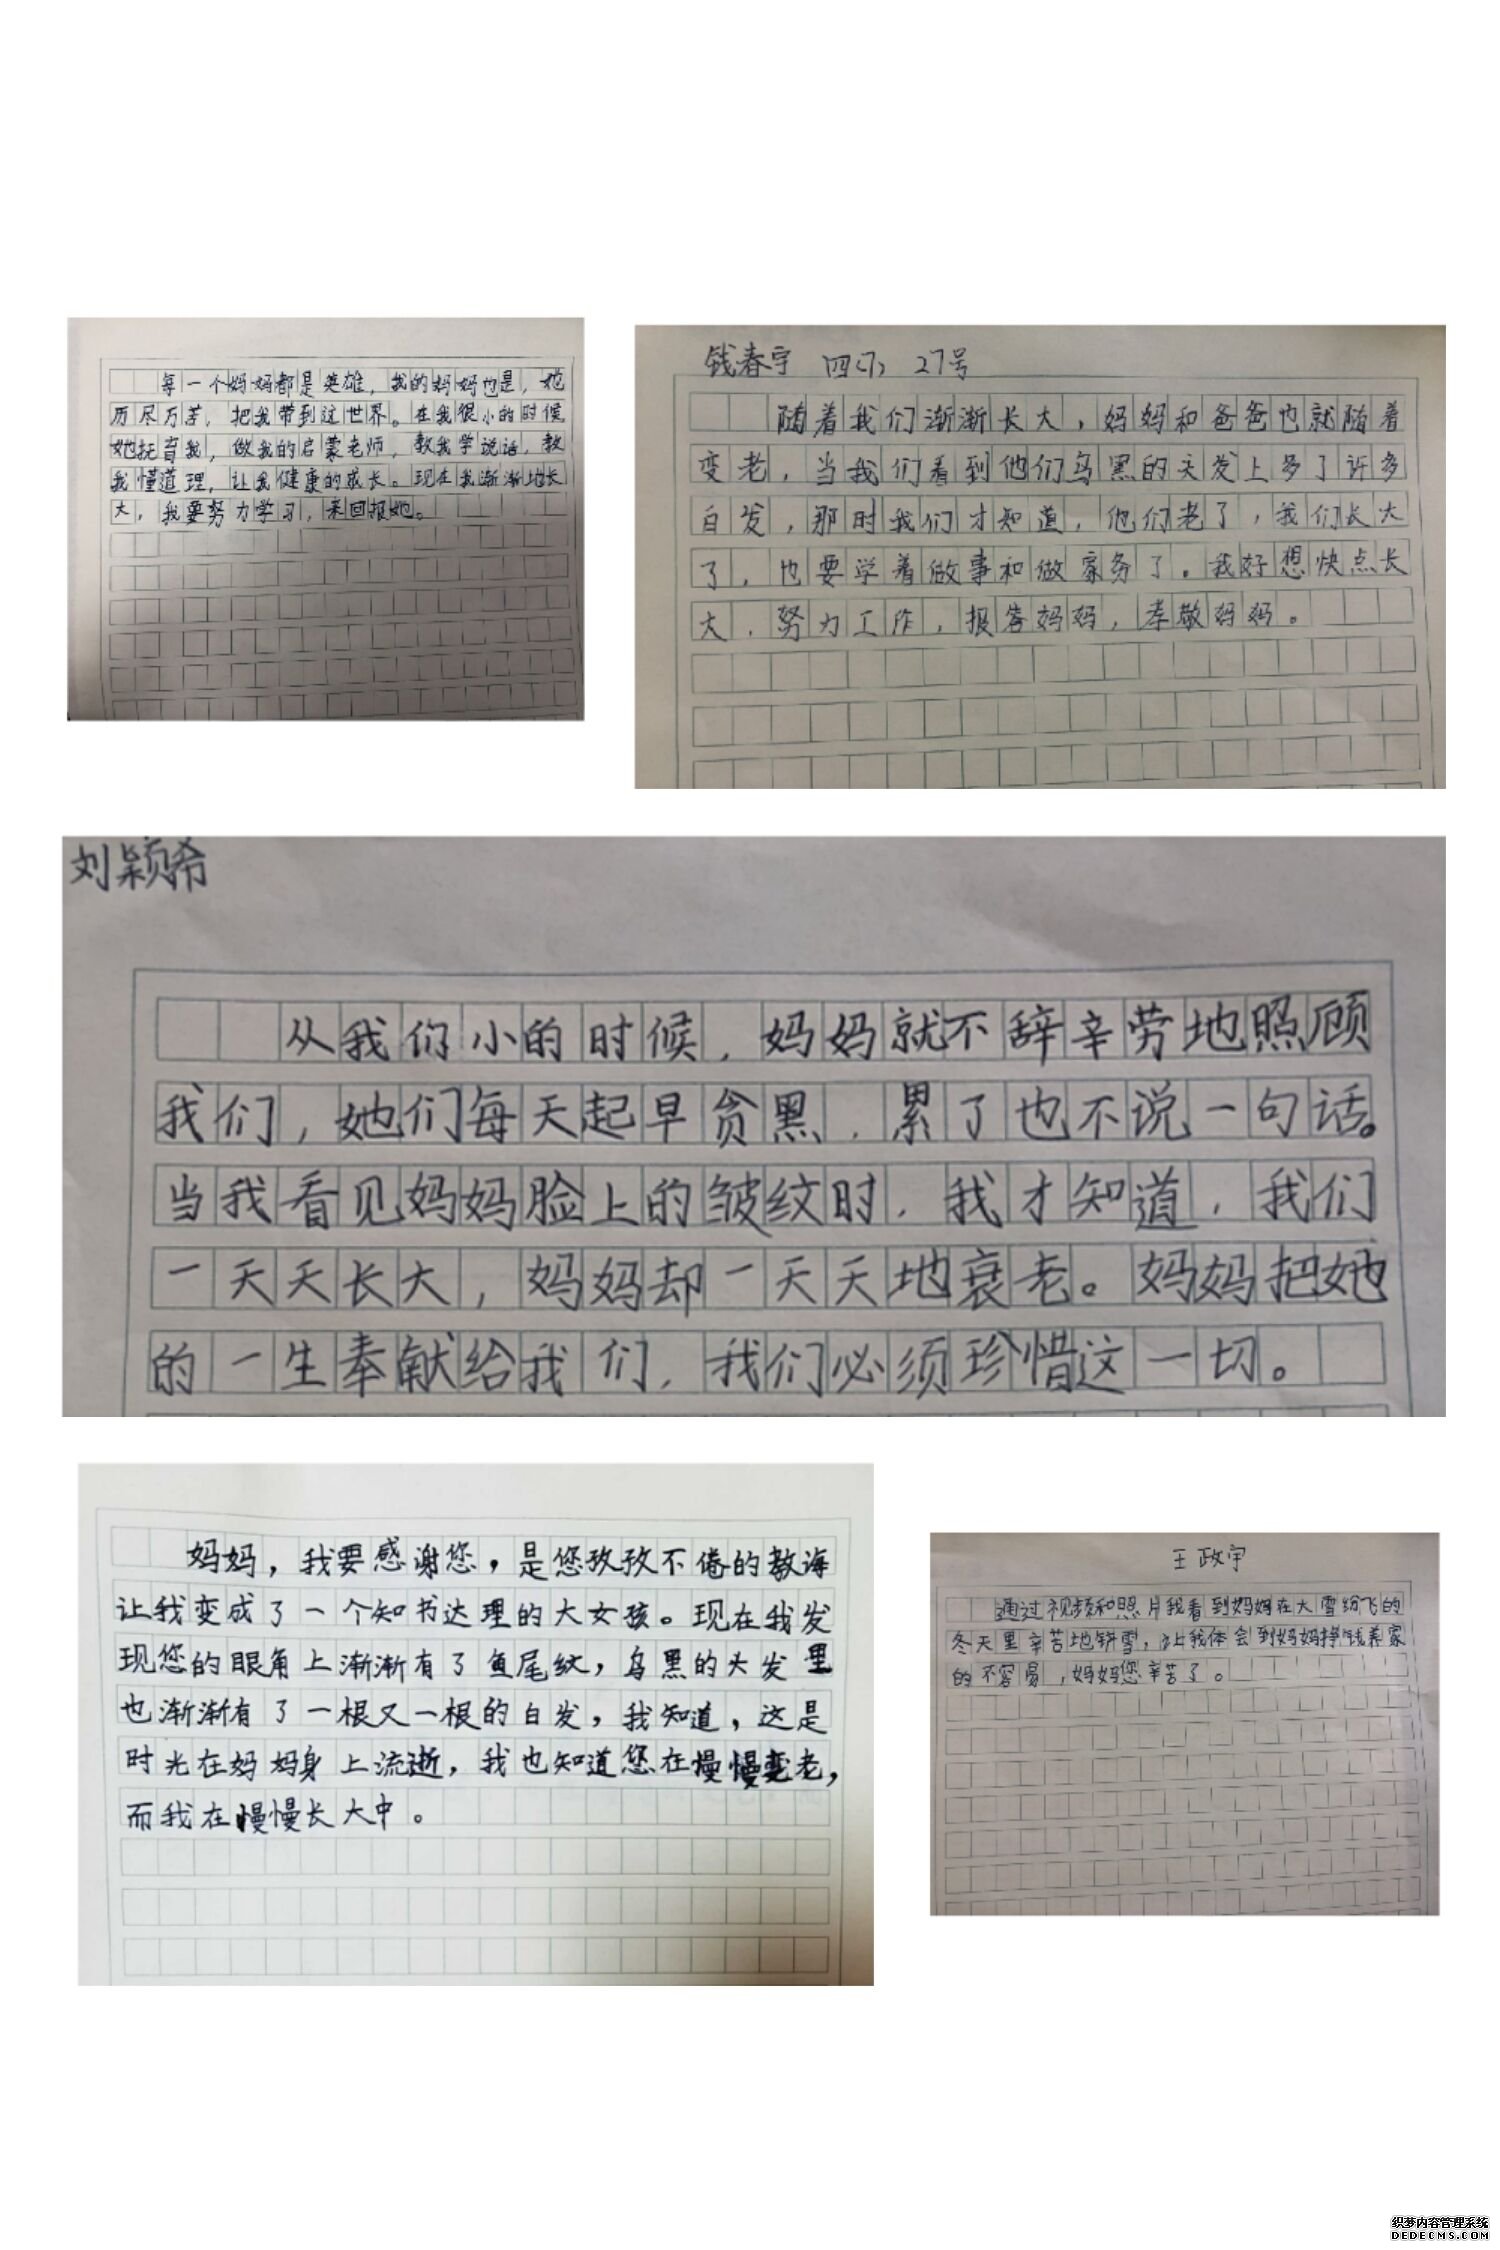 每一个妈妈都是英雄，我的妈妈也是，她
历尽万苦，把我带到这世界。在我很小的时候
她抚育我，做我的启蒙老师，教我学说话，教
我懂道理，让我健康的成长。现在我渐渐地长
大，我要努力学习，来回报她。
钱春宇 四(7) 27号
随着我们渐渐长大，妈妈和爸爸也就随着
变老，当我们看到他们乌黑的头发上多了许多
白发，那时我们才知道，他们老了，我们长大
了，也要学着做事和做家务了。我好想快点长
大，努力工作，报答妈妈，孝敬妈妈。
刘颖希
从我们小的时候，妈妈就不辞辛劳地照顾
我们，她们每天起早贪黑，累了也不说一句话。
当我看见妈妈脸上的皱纹时，我才知道，我们
一天天长大，妈妈却一天天地衰老。妈妈把她
的一生奉献给我们，我们必须珍惜这一切。
妈妈，我要感谢您，是您孜孜不倦的教诲
让我变成了一个知书达理的大女孩。现在我发
现您的眼角上渐渐有了鱼尾纹，乌黑的头发里
也渐渐有了一根又一根的白发，我知道，这是
时光在妈妈身上流逝，我也知道您在慢慢变老，
而我在慢慢长大中。
王政宇
通过视频和照片我看到妈妈在大雪纷飞的
冬天里辛苦地铲雪，让我体会到妈妈挣钱养家
的不容易，妈妈您辛苦了。
织梦内容管理系统
DEDECMS.COM